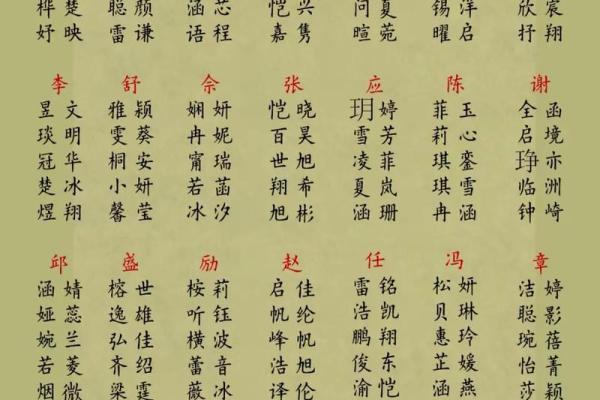 桦 楚 聪 颜 涵 芯 恺 兴 问 夏 锡 洋 欣 宸
妤 映 雷 谦 语 程 嘉 隽 暄 菀 曜 启 抒 翔
李 舒 佘 张 应 陈 谢
昱 文 雅 颖 娴 妍 恺 晓 玥 婷 菲 玉 全 函
琰 明 雯 葵 冉 妮 百 昊 雪 芳 莉 心 启 境
冠 华 桐 安 甯 瑞 世 旭 凌 菲 琪 銮 琤 亦
楚 冰 小 妍 若 菡 翔 希 夏 岚 琪 雪 临 洲
煜 翔 馨 莹 冰 汐 旭 彬 涵 珊 冉 涵 钟 崎
邱 盛 励 赵 任 冯 章
涵 婧 榕 世 桉 莉 启 佳 雷 铭 松 妍 洁 婷
娅 蕊 逸 雄 听 钰 帆 纶 浩 凯 贝 琳 聪 影
婉 兰 弘 佳 横 波 峰 帆 鹏 翔 惠 玲 琬 蓓
若 菱 齐 绍 蕾 音 浩 旭 俊 东 芷 媛 怡 菁
烟 微 梁 霆 薇 冰 译 伦 渝 恺 涵 燕 莎 颖